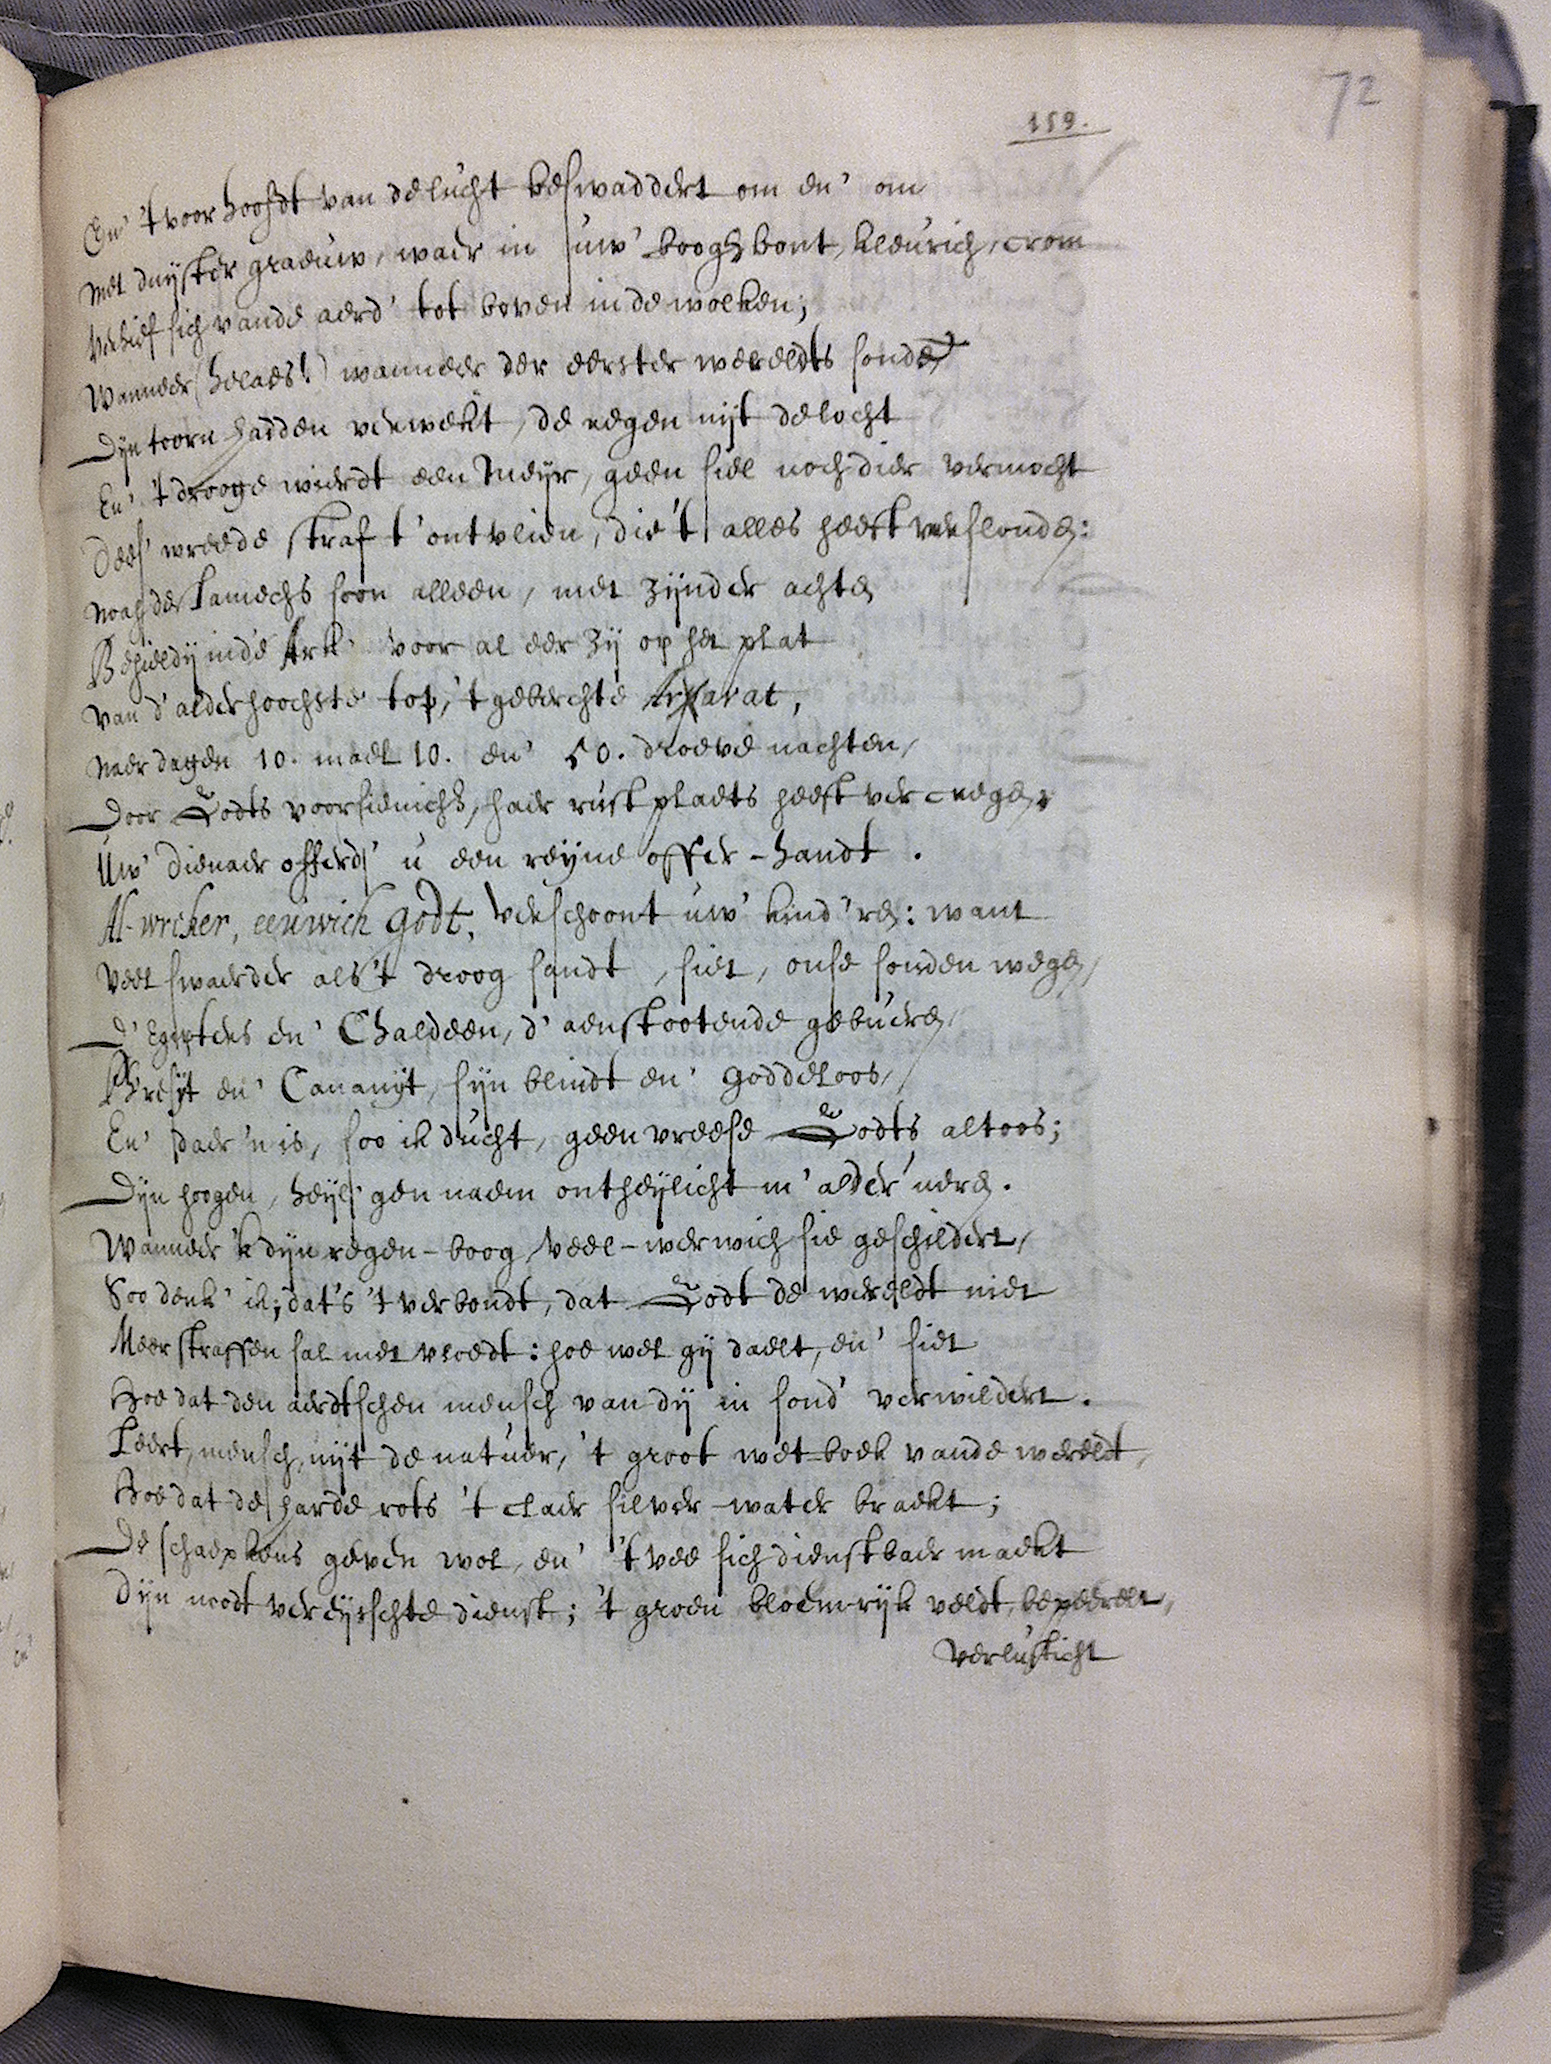 72
159.
En' 't voor hoofdt van de lucht beswaddert om en' om
Met duyster graeuw, waer in uw' boogh bont, kleurich, crom
Verhief sich vande aerd' tot boven in de wolken;
Wanneer (helaes!) wanneer der eerster wereldts sonde
Dijn toorn hadden verwekt, de regen uijt de locht
En' 't drooge wierdt een Meijr, geen siel noch dier vermocht
Dees' wreede straf t' ontvlien, die 't alles heeft verslonden:
Noah de Lamechs soon alleen, met zijnder achten
Behieldij in de Ark' voor al eer zij op het plat
Van d' alderhoochste top, 't geberchte Ararat,
Naer dagen 10. mael 10. en' 50. droeve nachten,
Door Godts voorsienich, haer rustplaets heeft vercregen,
Uw' dienaer offerd' u een reijne offer-handt.
Al-wreker, eeuwich Godt, verschoont uw' kind'ren: want
Veel swaerder als 't droog sandt, siet, onse sonden wegen,
D' Egipters en' Chaldeen, d' aenstootende gebueren,
Pheresijt en' Cananijt, sijn blindt en' goddeloos,
En' daer 'n is, soo ik ducht, geen vreese Godts altoos;
Dijn hoogen, heijl'gen naem ontheijlicht m' alder'ueren.
Wanneer 'k dijn regen-boog, veel-verwich sie geschildert,
Soo denk' ik; dat's 't verbondt, dat Godt de wereldt niet
Meer straffen sal met vloedt: hoe wel gij daelt, en' siet
Hoe dat den aerdtschen mensch van dij in sond' verwildert.
Leert, mensch, uijt de natuer, 't groot wet-boek vande wereldt,
Hoe dat de harde rots 't claer silver-water braekt;
De schaepkens geven wol, en' 't vee sich dienstbaer maekt
Dijn noodt vereijschte dienst; 't groen bloemrijk veldt, bepeerelt,
Verlusticht